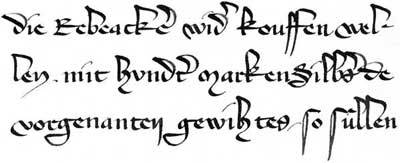 die Rebeacke͛ wid͛ kouffen wel-
len . mit hvndt͛ marken Silb͛s de
vorgenanten gewihtes so sùllen